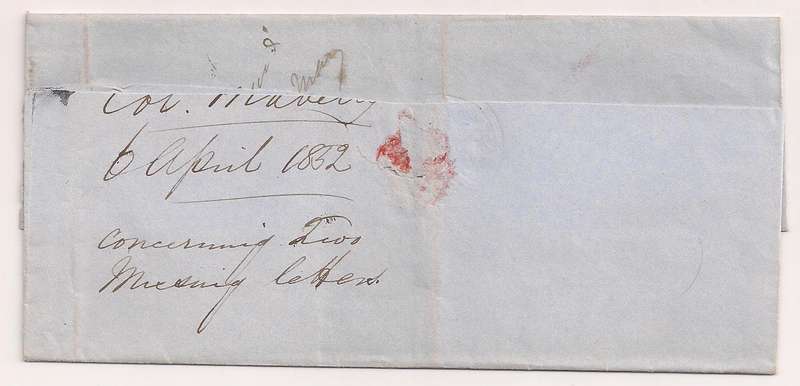 Col. Maberly
6 April 1852
concerning Two
Missing letters.